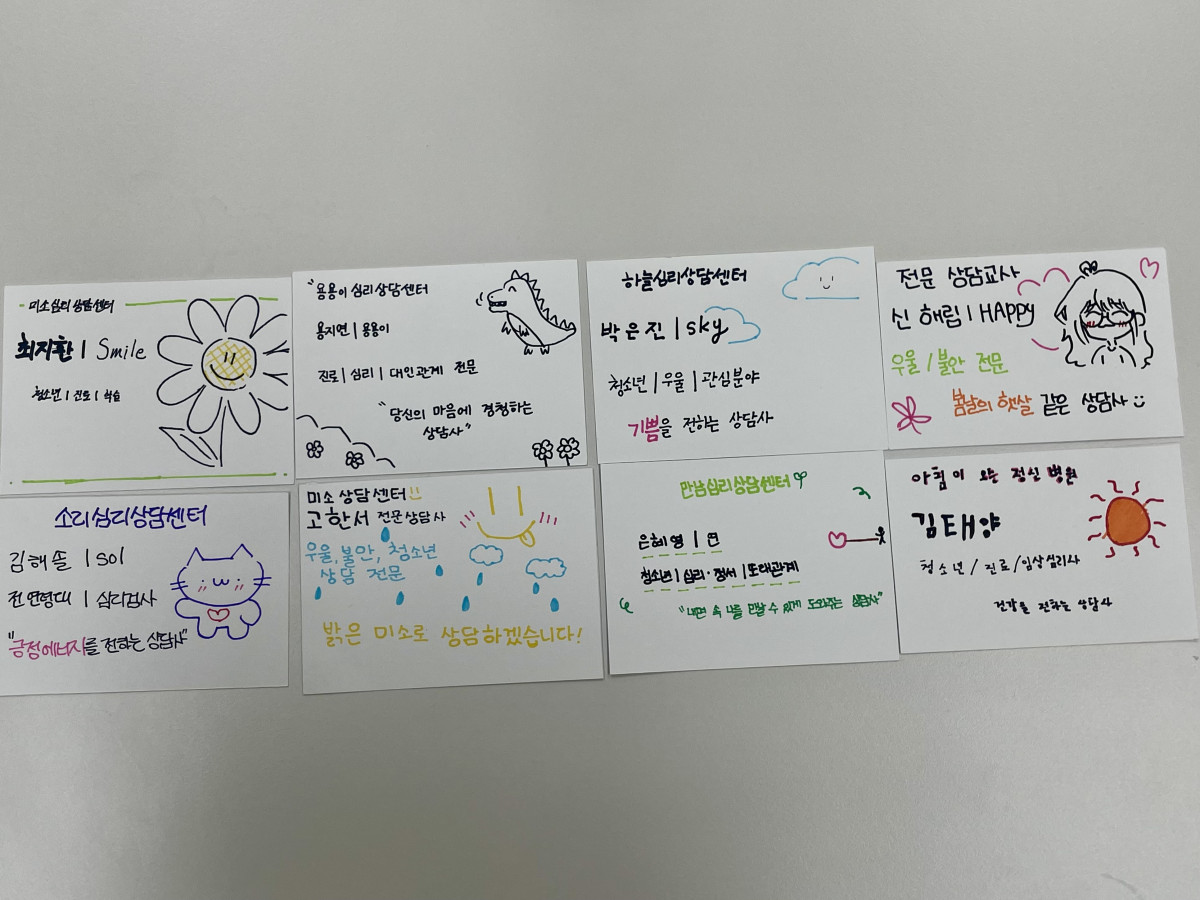 미소심리상담센터
최지환 | Smile
청소년 | 진로 | 학습
"용용이 심리상담센터
용지연 | 용용이
진로 | 심리 | 대인관계 전문
"당신의 마음에 경청하는
상담사"
하늘심리상담센터
박은진 | sky
청소년 | 우울 | 관심분야
기쁨을 전하는 상담사
전문 상담교사
신해림 | HAPPY
우울 / 불안 전문
봄날의 햇살 같은 상담사
소리심리상담센터
김해솔 | sol
전연령대 | 심리검사
"긍정에너지를 전하는 상담사"
미소 상담센터
고한서 전문상담사
우울, 불안, 청소년
상담 전문
밝은 미소로 상담하겠습니다!
만남심리상담센터
은혜영 | 연
청소년 | 심리·정서 | 또래관계
"내면 속 나를 만날 수 있게 도와주는 상담사"
아침이 오는 정신병원
김태양
청소년 / 진로 / 임상심리사
건강을 전하는 상담사